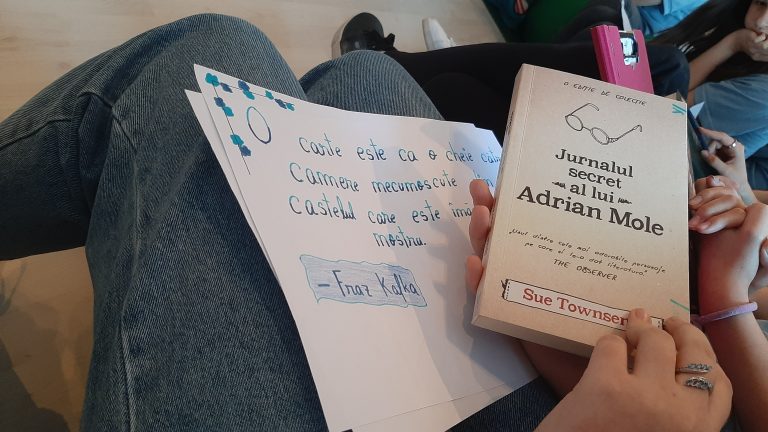 O carte este ca o cheie
camere necunoscute
castelul care este
nostru.
– Franz Kafka
O EDIȚIE DE COLECȚIE
Jurnalul
secret
al lui
Adrian Mole
„Unul dintre cele mai adorabile personaje
pe care ni le-a dat literatura.”
THE OBSERVER
Sue Townsen